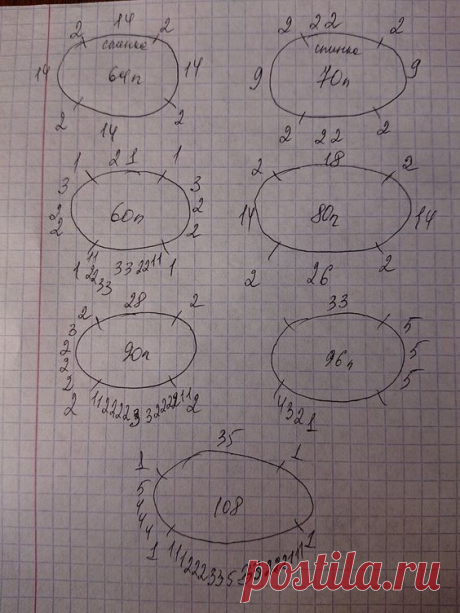 2 14 2
спинка
14 64п 14
2 14 2
2 22 2
спинка
9 70п 9
2 22 2
1 21 1
3 3
2 60п 2
2 2
1 11 33 22 11 1
22
33
2 18 2
14 80п 14
2 26 2
2 28 2
3
2 90п
2
2
2 11 222 2
33
5
96п 5
5
4 3 2 1
35
1 1
5
4 108
4
4
1 1
postila.ru